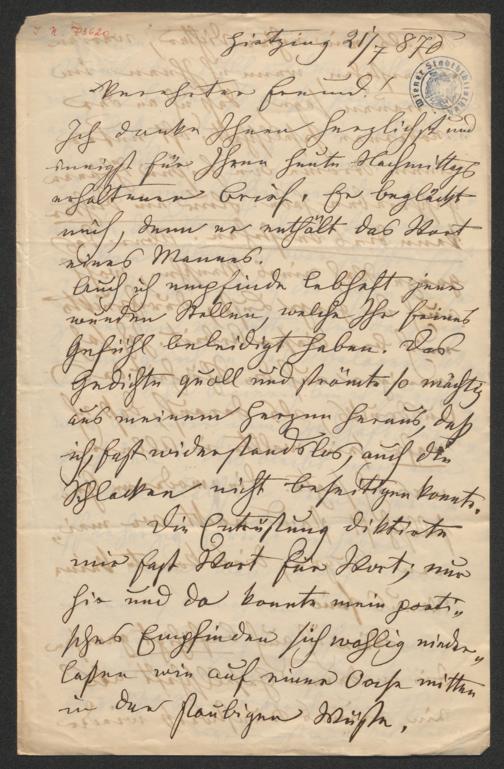 I. N. 73620
Wiener Stadtbibliothek
Hietzing 21/7 870
Verehrter Freund!
Ich danke Ihnen herzlichst und
innigst für Ihren heute Nachmittags
erhaltenen Brief. Er beglückt
mich, denn er enthält das Wort
eines Mannes.
Auch ich empfinde lebhaft jene
wunden Stellen, welche Ihr feines
Gefühl beleidigt haben. Das
Gedicht quoll und strömte so mächtig
aus meinem Herzen heraus, daß
ich, fast widerstandslos, auch die
Schlacken nicht beseitigen konnte.
Die Entrüstung diktirte
mir fast Wort für Wort; nur
hie und da konnte mein poeti-
sches Empfinden sich wohlig nieder-
lassen wie auf einer Oase mitten
in der staubigen Wüste.